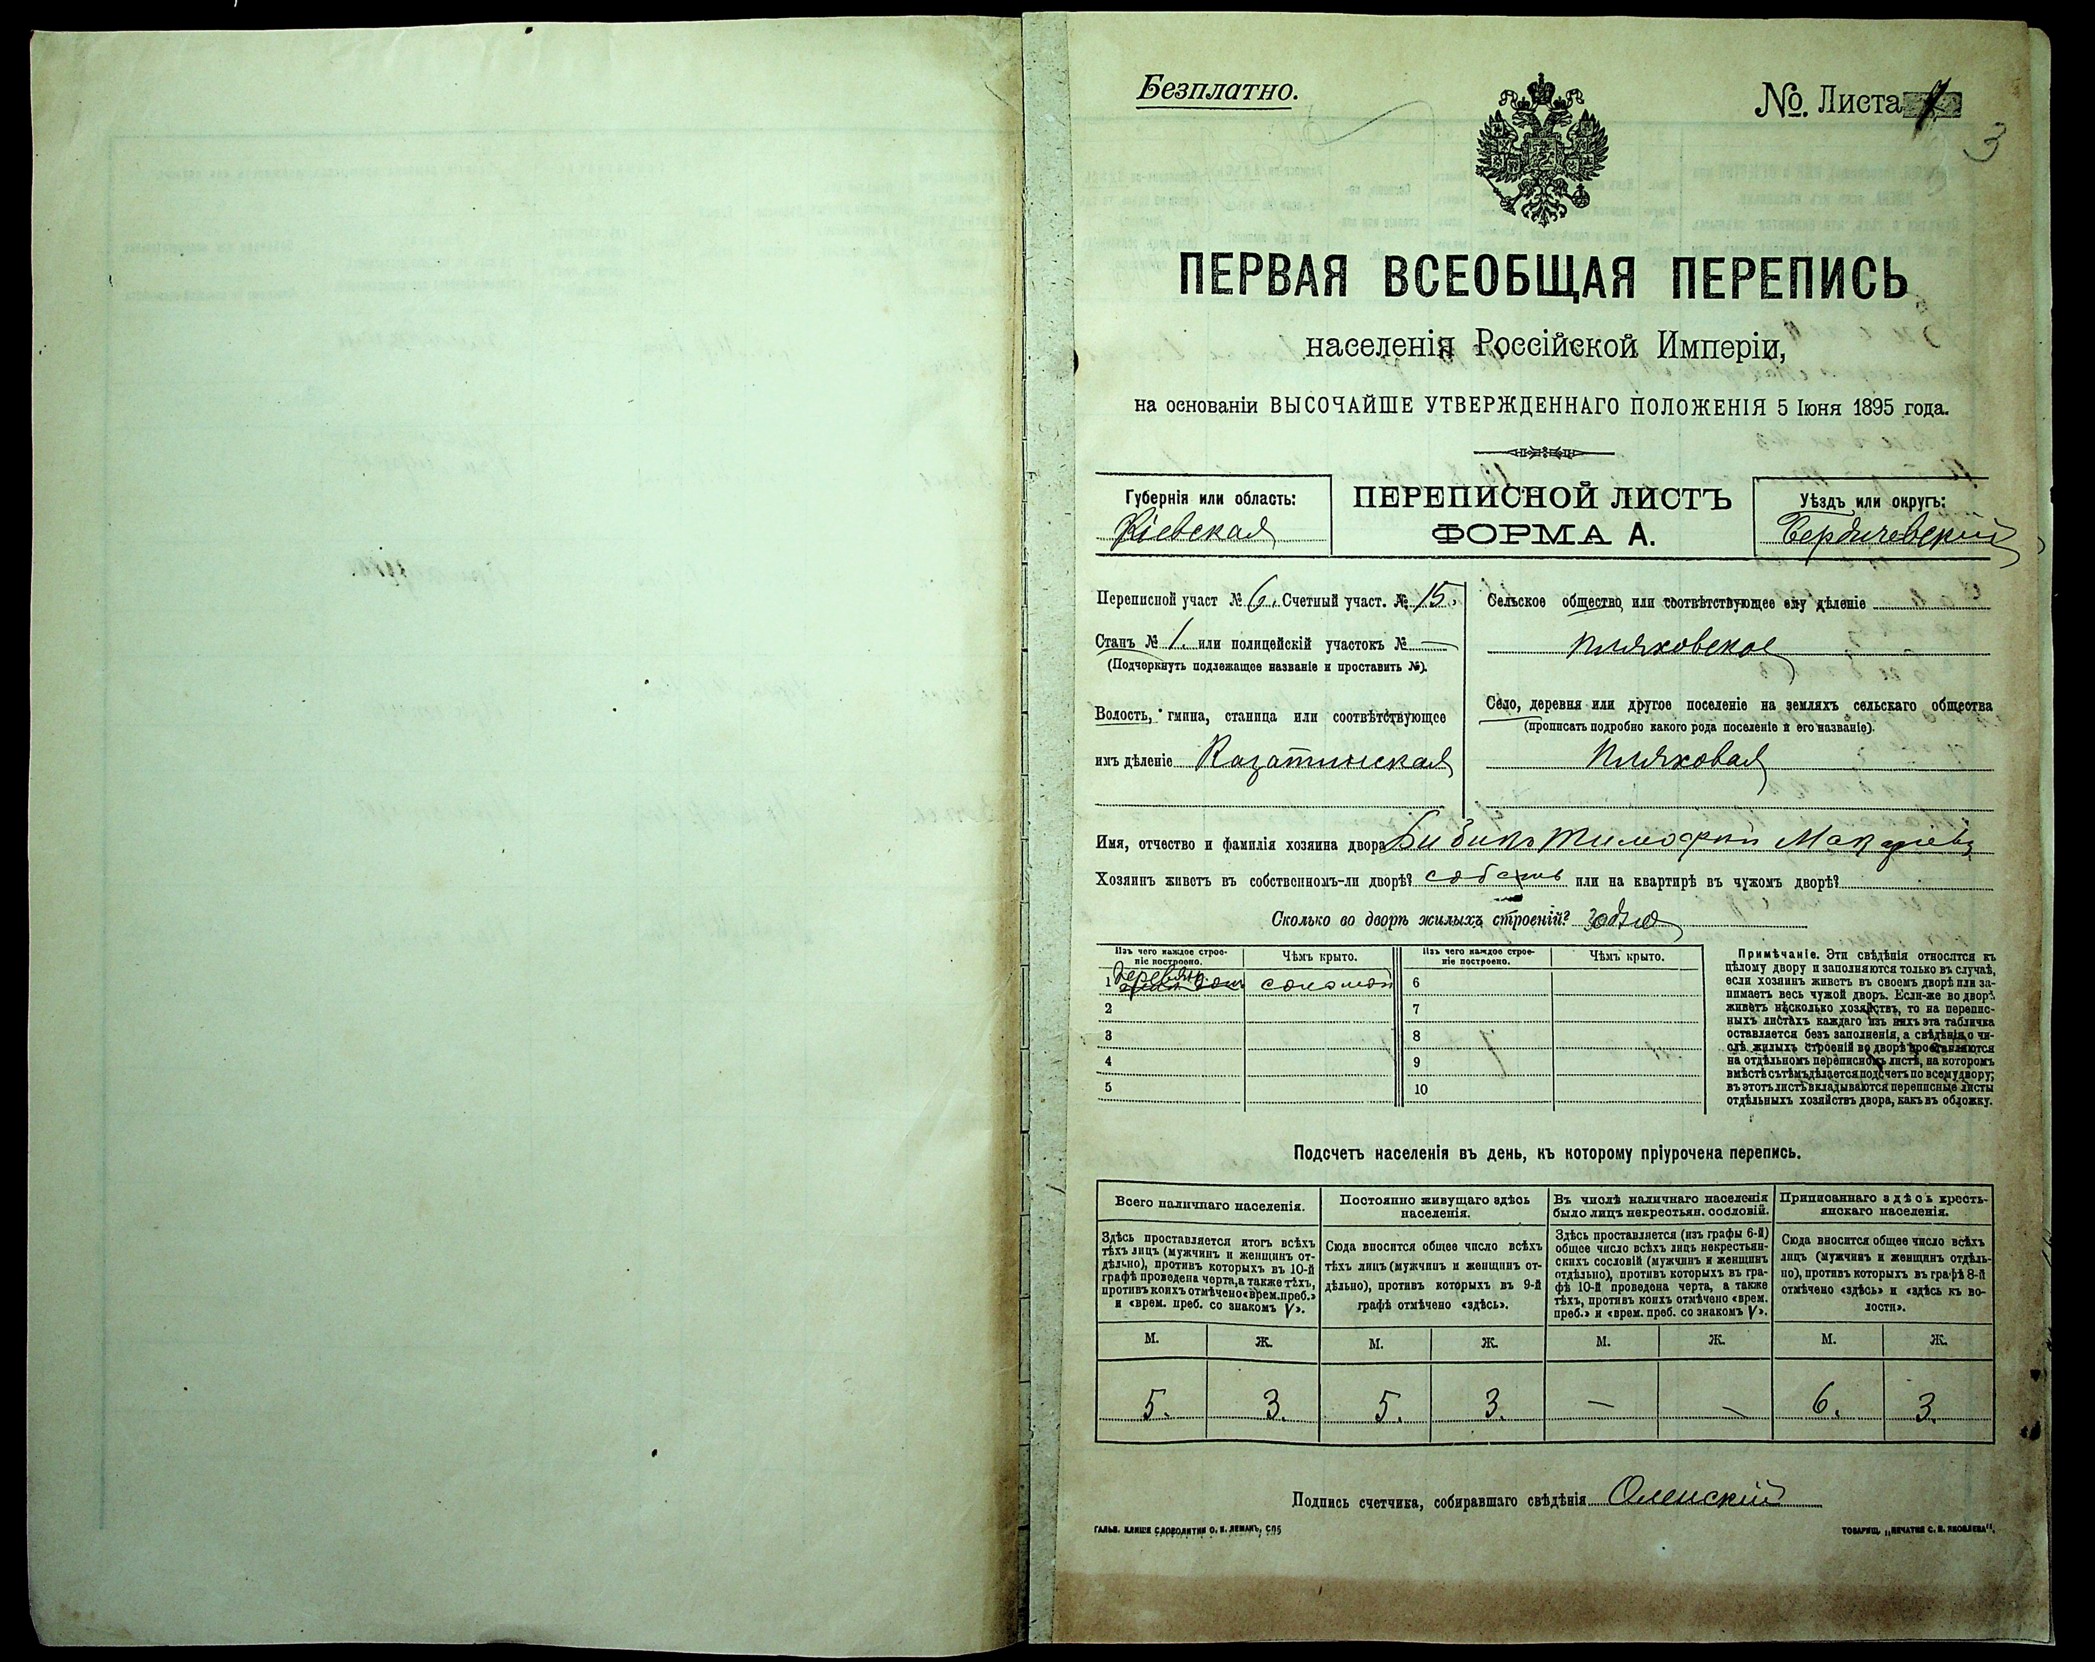 Безплатно.
№. Листа 1
3
ПЕРВАЯ ВСЕОБЩАЯ ПЕРЕПИСЬ
населенія Россійской Имперіи,
на основаніи ВЫСОЧАЙШЕ УТВЕРЖДЕННАГО ПОЛОЖЕНІЯ 5 Іюня 1895 года.
Губернія или область:
Кіевская
ПЕРЕПИСНОЙ ЛИСТЪ
ФОРМА А.
Уѣздъ или округъ:
Бердичевскій
Переписной участ № 6. Счетный участ. № 15,
Станъ № 1. или полицейскій участокъ № —
(Подчеркнуть подлежащее названіе и проставить №).
Волость, гмина, станица или соотвѣтствующее
имъ дѣленіе Казатинская
Сельское общество или соотвѣтствующее ему дѣленіе
Пляховское
Село, деревня или другое поселеніе на земляхъ сельскаго общества
(прописать подробно какого рода поселеніе и его названіе).
Пляховая
Имя, отчество и фамилія хозяина двора Бибикъ Тимофей Макаріевъ
Хозяинъ живетъ въ собственномъ-ли дворѣ? собств или на квартирѣ въ чужомъ дворѣ?
Сколько во дворѣ жилыхъ строеній? одно
Изъ чего каждое строеніе построено.
Чѣмъ крыто.
Изъ чего каждое строеніе построено.
Чѣмъ крыто.
1 Деревян. соломой
2
3
4
5
6
7
8
9
10
Примѣчаніе. Эти свѣдѣнія относятся къ
цѣлому двору и заполняются только въ случаѣ,
если хозяинъ живетъ въ своемъ дворѣ или за-
нимаетъ весь чужой дворъ. Если-же во дворѣ
живетъ нѣсколько хозяйствъ, то на перепис-
ныхъ листахъ каждаго изъ нихъ эта табличка
оставляется безъ заполненія, а свѣдѣнія о чи-
слѣ жилыхъ строеній во дворѣ проставляются
на отдѣльномъ переписномъ листѣ, на которомъ
вмѣстѣ съ тѣмъ дѣлается подсчетъ по всему двору;
въ этотъ листъ вкладываются переписные листы
отдѣльныхъ хозяйствъ двора, какъ въ обложку.
Подсчетъ населенія въ день, къ которому пріурочена перепись.
Всего наличнаго населенія.
Здѣсь проставляется итогъ всѣхъ
тѣхъ лицъ (мужчинъ и женщинъ от-
дѣльно), противъ которыхъ въ 10-й
графѣ проведена черта, а также тѣхъ,
противъ коихъ отмѣчено «врем. преб.»
и «врем. преб. со знакомъ V».
Постоянно живущаго здѣсь
населенія.
Сюда вносится общее число всѣхъ
тѣхъ лицъ (мужчинъ и женщинъ от-
дѣльно), противъ которыхъ въ 9-й
графѣ отмѣчено «здѣсь».
Въ числѣ наличнаго населенія
было лицъ некрестьян. сословій.
Здѣсь проставляется (изъ графы 6-й)
общее число всѣхъ лицъ некрестьян-
скихъ сословій (мужчинъ и женщинъ
отдѣльно), противъ которыхъ въ гра-
фѣ 10-й проведена черта, а также
тѣхъ, противъ коихъ отмѣчено «врем.
преб.» и «врем. преб. со знакомъ V».
Приписаннаго здѣсь кресть-
янскаго населенія.
Сюда вносится общее число всѣхъ
лицъ (мужчинъ и женщинъ отдѣль-
но), противъ которыхъ въ графѣ 8-й
отмѣчено «здѣсь» и «здѣсь къ во-
лости».
М. Ж. М. Ж. М. Ж. М. Ж.
5. 3. 5. 3. — — 6. 3.
Подпись счетчика, собиравшаго свѣдѣнія Оленскій
ГАЛЬВ. КЛИШЕ СЛОВОЛИТНИ О. И. ЛЕМАНЪ, СПБ
ТОВАРИЩ. „ПЕЧАТНЯ С. П. ЯКОВЛЕВА".